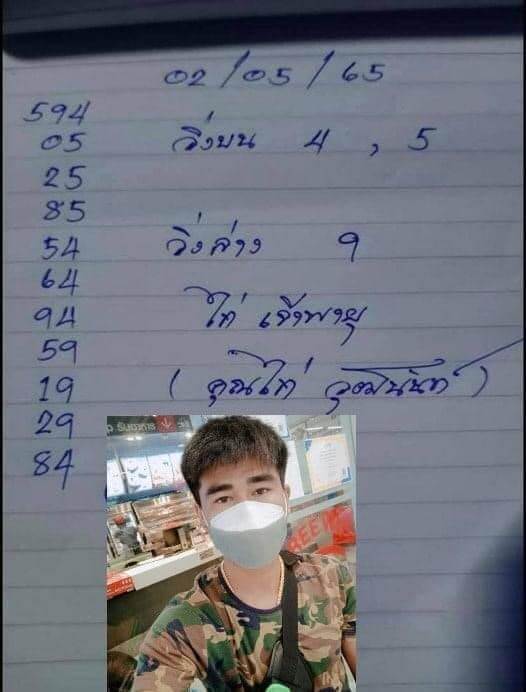 02/05/65
594
05 วิ่งบน 4 , 5
25
85
54 วิ่งล่าง 9
64
94 ไก่ เจ้าพายุ
59
19 ( คุณไก่ วุฒินันท์ )
29
84
รับอาหาร